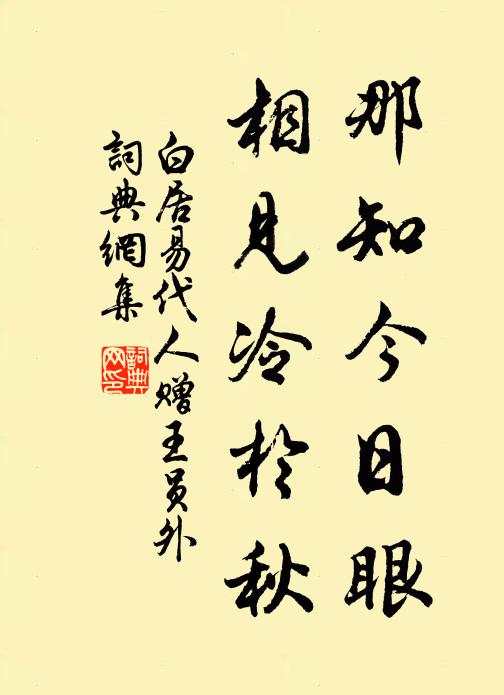 那知今日眼
相見冷於秋
白居易代人贈王員外
詞典網集
詞典网印